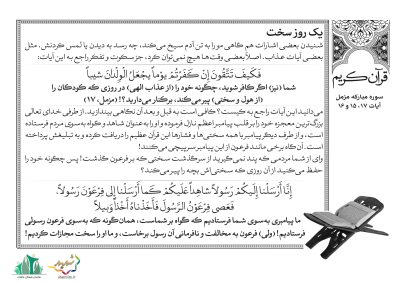 یک روز سخت
شنیدن بعضی اشارات هم گاهی مو را به تن آدم سیخ می‌کند، چه رسد به دیدن یا لمس کردنش، مثل
بعضی آیات عذاب. اصلاً بعضی وقت‌ها هیچ نمی‌توان کرد، جز سکوت و تفکر راجع به این آیات:
فَکَیفَ تَتَّقُونَ إِن کَفَرتُم یَوماً یَجعَلُ الوِلدَانَ شیباً
شما (نیز) اگر کافر شوید، چگونه خود را (از عذاب الهی) در روزی که کودکان را
(از هول و سختی) پیر می‌کند، برکنار می‌دارید؟! (مزمل، ۱۷)
می‌دانید این آیات راجع به کیست؟ کافی است به قبل و بعد آن نگاهی بیندازید. از طرفی خدای تعالی
بزرگ‌ترین معجزه خود را بر قلب پیامبر اعظم نازل فرموده و او را به عنوان شاهد و گواه به سوی مردم فرستاده
است، و از طرف دیگر پیامبر با همه سختی‌ها و فشارها این قرآن عظیم را دریافت کرده و به تبلیغش پرداخته
است. آن‌گاه برخی مانند فرعون از این پیامبر سرپیچی می‌کنند!
وای از شما مردمی که پند نمی‌گیرید از سرگذشت سختی که بر فرعون گذشت! پس چگونه خود را
حفظ می‌کنید از آن روزی که سختی‌اش بچه را پیر می‌کند؟
إِنَّا أَرسَلنَا إِلَیکُم رَسُولاً شاهِداً عَلَیکُم کَما أَرسَلنا إِلی فِرعَونَ رَسُولاً،
فَعَصی فِرعَونُ الرَّسُولَ فَأَخَذناهُ أَخذاً وَبیلاً
ما پیامبری به‌سوی شما فرستادیم که گواه بر شماست، همان‌گونه که به‌سوی فرعون رسولی
فرستادیم! (ولی) فرعون به مخالفت و نافرمانی آن رسول برخاست، و ما او را سخت مجازات کردیم!
قرآن کریم
سوره مبارکه مزمل
آیات ۱۷، ۱۵ و ۱۶